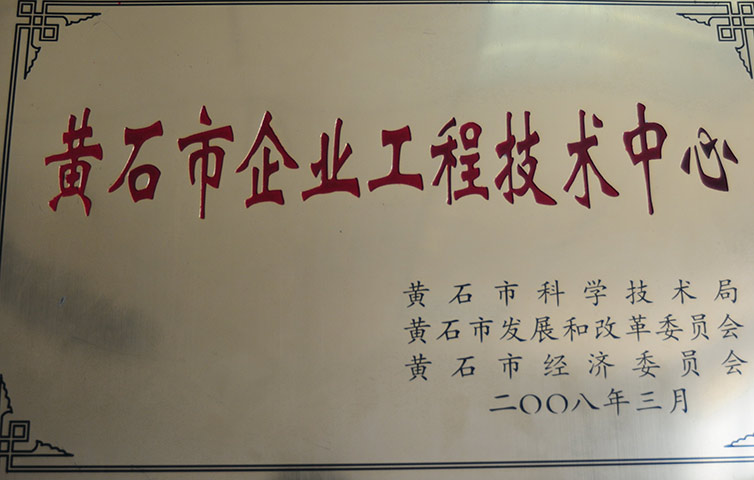 黄石市企业工程技术中心
黄石市科学技术局
黄石市发展和改革委员会
黄石市经济委员会
二〇〇八年三月